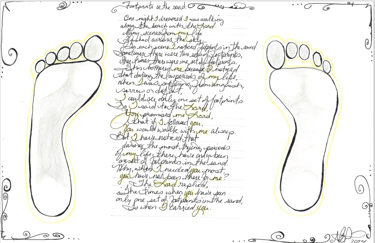 Footprints in the sand
One night I dreamed I was walking
along the beach with the Lord
Many scenes from my life
flashed across the sky
In each scene I noticed footprints in the sand
Sometimes there were two sets of footprints,
other times there was one set of footprints.
This bothered me because I noticed
that during the low periods of my life,
when I was suffering from anguish,
sorrow or defeat
I could see only one set of footprints
So I said to the Lord,
You promised me Lord,
that if I followed you,
You would walk with me always.
But I have noticed that
during the most trying periods
of my life there have only been
one set of footprints in the sand.
Why, when I needed you most
you have not been there for me
The Lord replied,
The times when you have seen
only one set of footprints in the sand,
is when I carried you.
2004